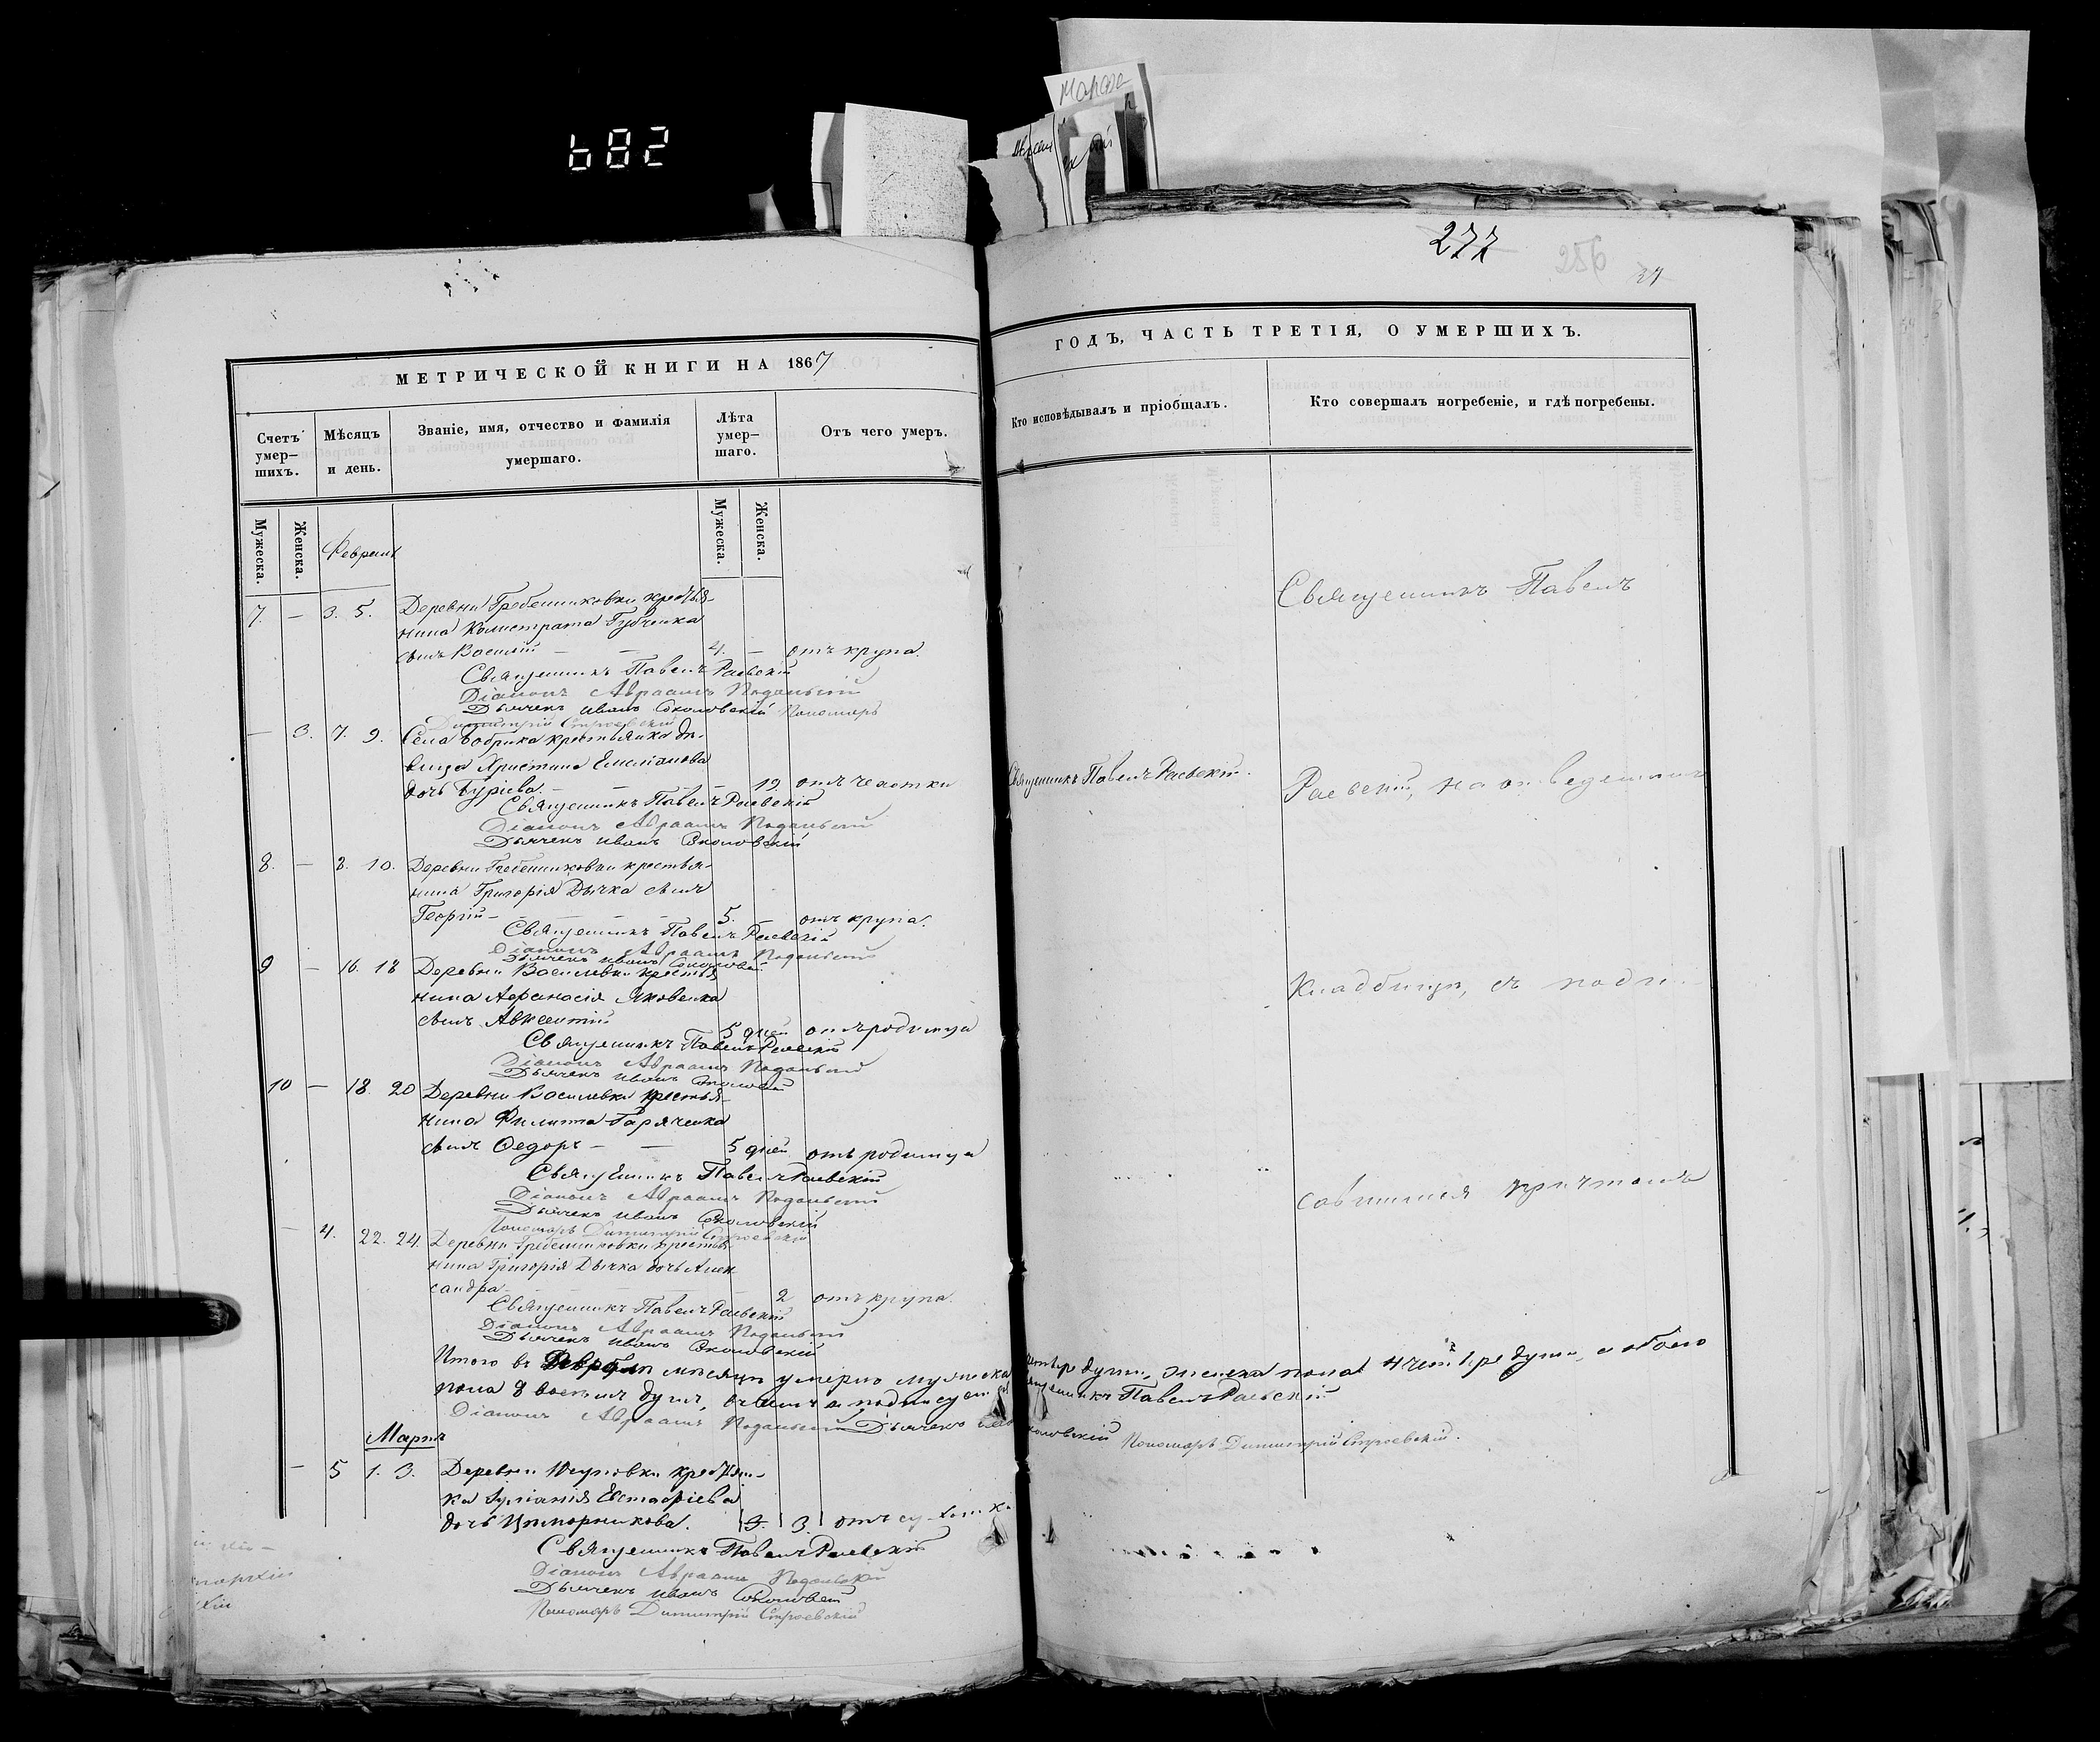 682
Марта
277
256
37
МЕТРИЧЕСКОЙ КНИГИ НА 1867
ГОДЪ, ЧАСТЬ ТРЕТІЯ, О УМЕРШИХЪ.
Счетъ умер-шихъ.
Мѣсяцъ и день.
Званіе, имя, отчество и фамилія умершаго.
Лѣта умер-шаго.
Отъ чего умеръ.
Кто исповѣдывалъ и пріобщалъ.
Кто совершалъ погребеніе, и гдѣ погребены.
Мужеска.
Женска.
Мужеска.
Женска.
Февраль
7. — 3. 5. Деревни Гребенниковки крестья-
нина Калистрата Губченка
сынъ Василій — — 4. — отъ крупа.
Священникъ Павелъ Раевскій
Діаконъ Авраамъ Подольскій
Дьячекъ Иванъ Соколовскій Пономарь
Димитрій Строевскій
— 3. 7. 9. Села Бобрика крестьянка дѣ-
вица Христина Емеліанова
дочь Гуріева. — — — 19. отъ чахотки
Священникъ Павелъ Раевскій
Діаконъ Авраамъ Подольскій
Дьячекъ Иванъ Соколовскій
8. — 8. 10. Деревни Гребенниковки крестья-
нина Григорія Дычка сынъ
Георгій — — — 5. — отъ крупа.
Священникъ Павелъ Раевскій
Діаконъ Авраамъ Подольскій
Дьячекъ Иванъ Соколовскій
9 — 16. 18 Деревни Василевки крестья-
нина Афанасія Яковенка
сынъ Авксентій 5 дней отъ родимца
Священникъ Павелъ Раевскій
Діаконъ Авраамъ Подольскій
Дьячекъ Иванъ Соколовскій
10 — 18. 20 Деревни Василевки крестья-
нина Филиппа Гаряченка
сынъ Ѳедоръ — — 5 дней отъ родимца
Священникъ Павелъ Раевскій
Діаконъ Авраамъ Подольскій
Дьячекъ Иванъ Соколовскій
Пономарь Димитрій Строевскій
— 4. 22. 24. Деревни Гребенниковки крестья-
нина Григорія Дычка дочь Алек-
сандра — — — 2 отъ крупа.
Священникъ Павелъ Раевскій
Діаконъ Авраамъ Подольскій
Дьячекъ Иванъ Соколовскій
Итого въ Февралѣ мѣсяцѣ умерло мужеска
пола 8 восемь душъ,
Діаконъ Авраамъ Подольскій Дьячекъ
Мартъ
— 5 1. 3. Деревни крестьян-
ка Евстафіева
дочь 3. 3. отъ
Священникъ Павелъ Раевскій
Діаконъ Авраамъ Подольскій
Дьячекъ Иванъ Соколовскій
Пономарь Димитрій Строевскій
Священникъ Павелъ
Священникъ Павелъ Раевскій.
Раевскій, на отведенномъ
Кладбищѣ, съ
причтомъ
душъ, женска пола 4 душъ, а обоего
Священникъ Павелъ Раевскій
Соколовскій Пономарь Димитрій Строевскій.